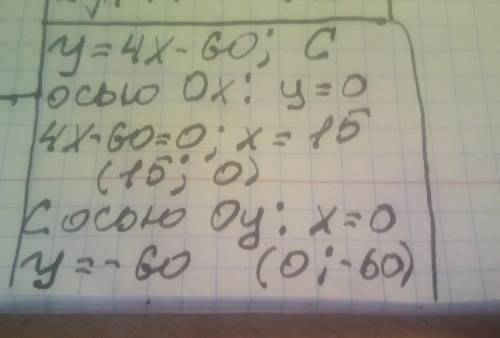 y=4x-60; С
осью Ox: y=0
4x-60=0; x=15
(15; 0)
С осью Oy: x=0
y=-60 (0;-60)